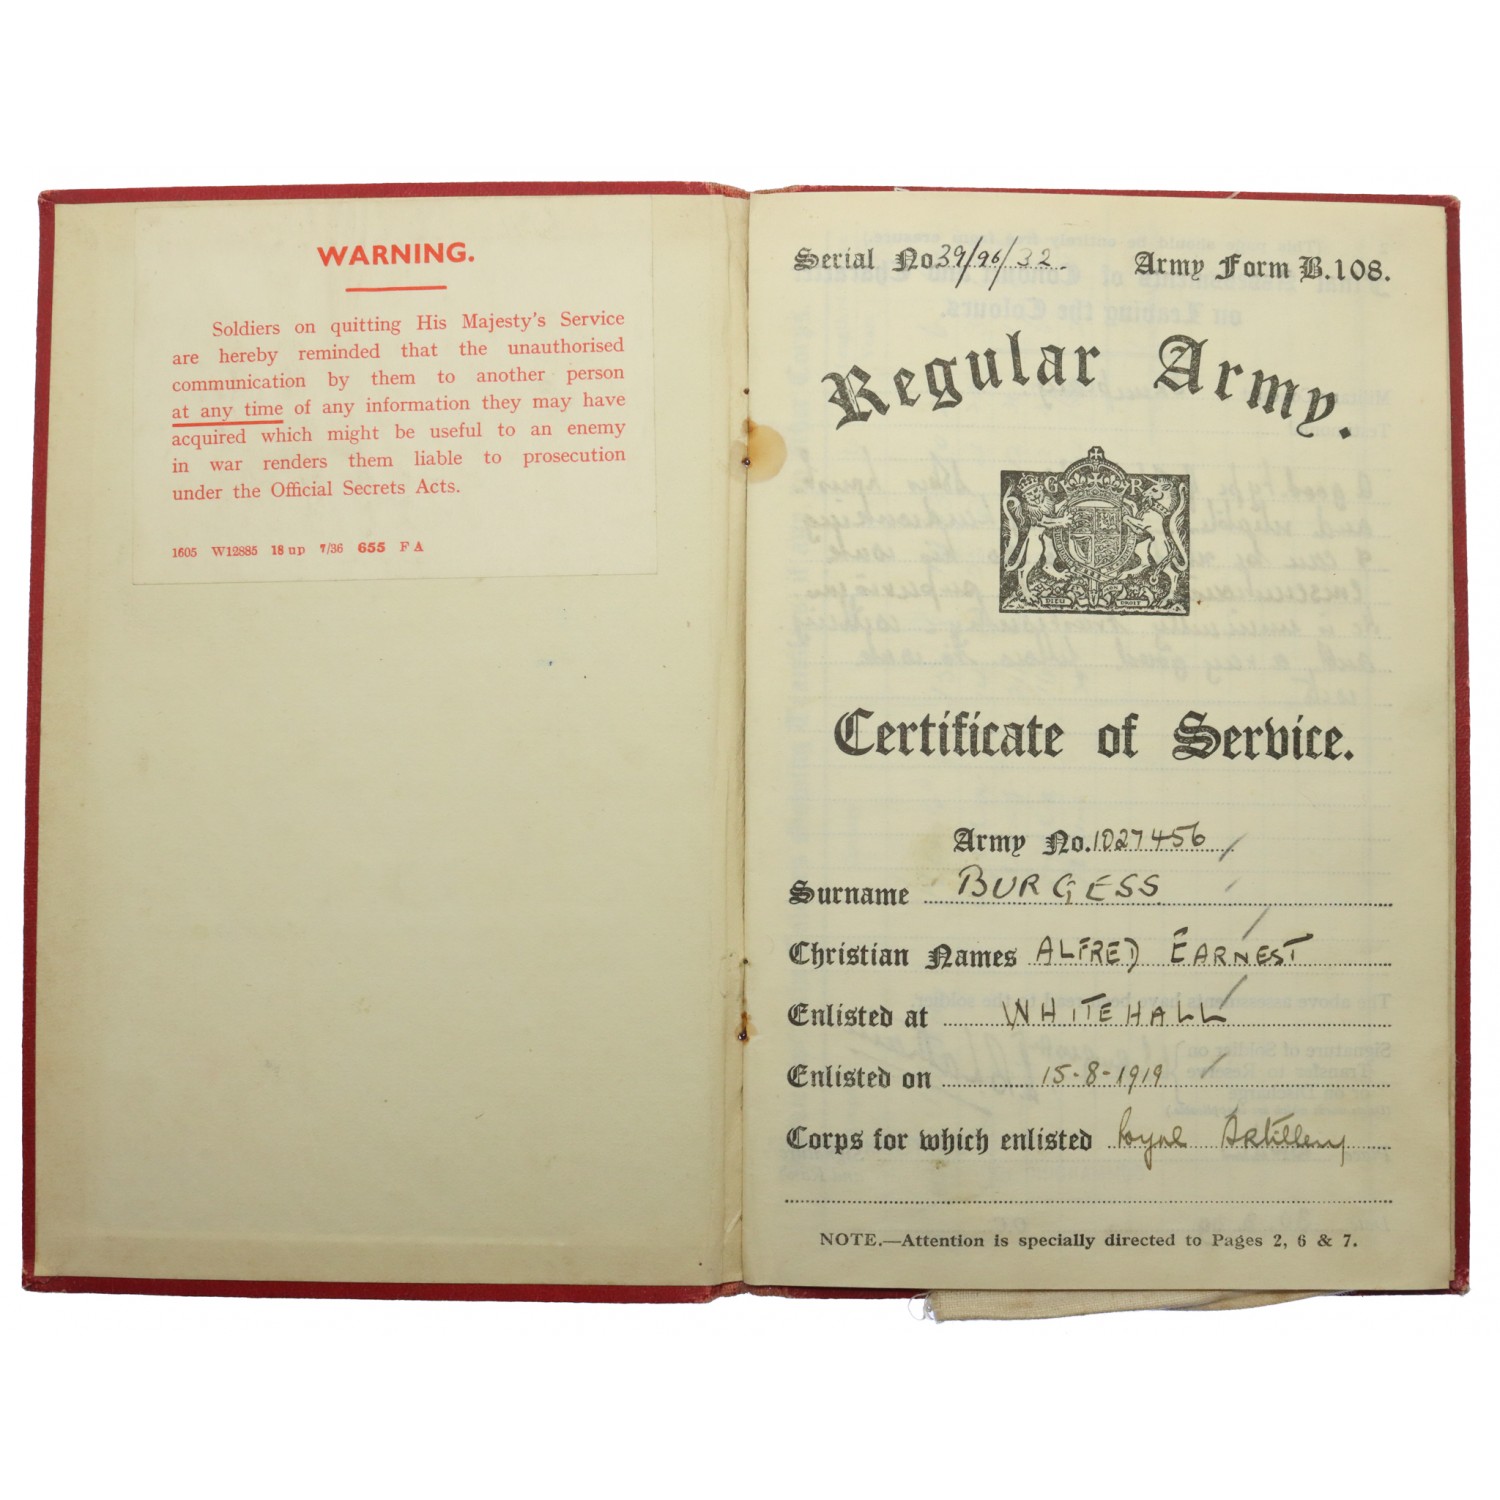 WARNING.
Soldiers on quitting His Majesty's Service
are hereby reminded that the unauthorised
communication by them to another person
at any time of any information they may have
acquired which might be useful to an enemy
in war renders them liable to prosecution
under the Official Secrets Acts.
1605 W12885 18 up 7/36 655 F A
Serial No 39/96/32. Army Form B.108.
Regular Army.
G R
DIEU DROIT
Certificate of Service.
Army No. 1027456
Surname BURGESS
Christian Names ALFRED EARNEST
Enlisted at WHITEHALL
Enlisted on 15-8-1919
Corps for which enlisted Royal Artillery
NOTE.—Attention is specially directed to Pages 2, 6 & 7.